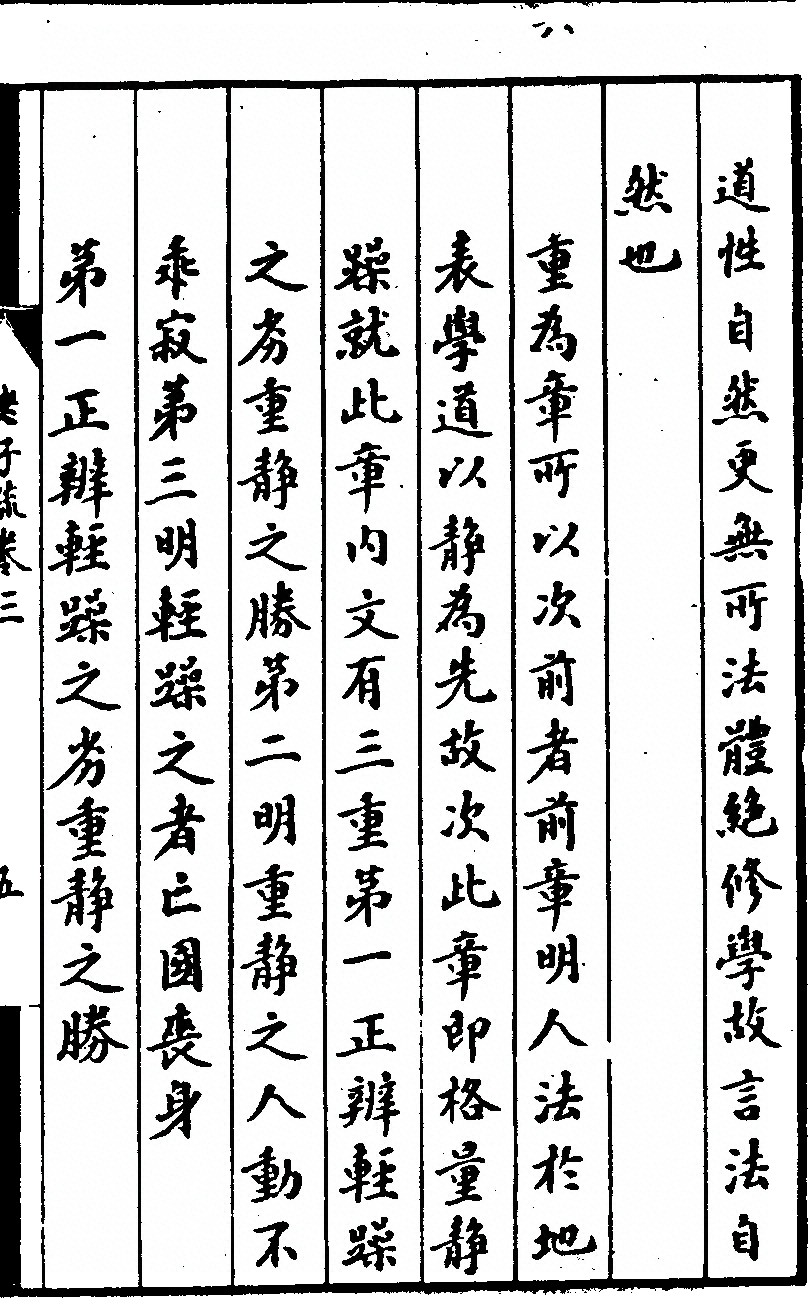 道性自然更無所法體絕修學故言法自
然也
重為章所以次前者前章明人法於地
表學道以靜為先故次此章即格量靜
躁就此章內文有三重第一正辨輕躁
之劣重靜之勝第二明重靜之人動不
乖寂第三明輕躁之者亡國喪身
第一正辨輕躁之劣重靜之勝
老子疏卷三
五